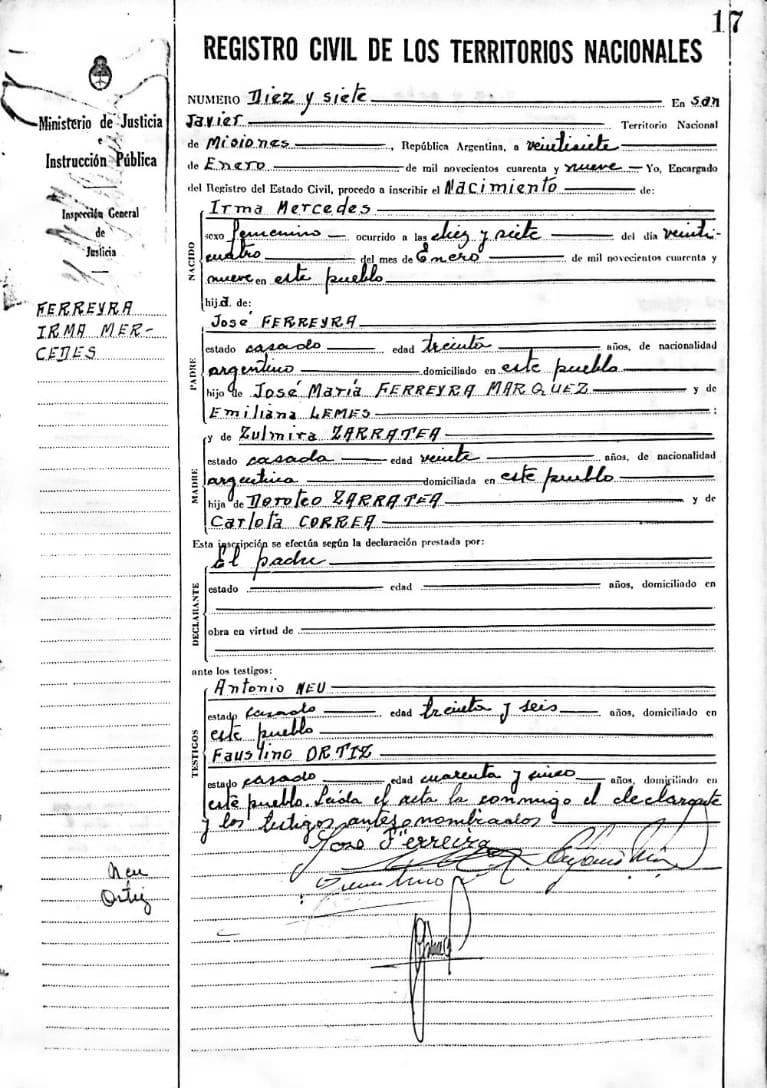 17
REGISTRO CIVIL DE LOS TERRITORIOS NACIONALES
Ministerio de Justicia
e
Instrucción Pública
Inspección General
de
Justicia
FERREYRA
IRMA MER-
CEDES
NUMERO Diez y siete En San
Javier Territorio Nacional
de Misiones, República Argentina, a veintisiete
de Enero de mil novecientos cuarenta y nueve Yo, Encargado
del Registro del Estado Civil, procedo a inscribir el Nacimiento de:
NACIDO
Irma Mercedes
sexo femenino ocurrido a las diez y siete del día veinti-
cuatro del mes de Enero de mil novecientos cuarenta y
nueve en este pueblo
hija de:
PADRE
José FERREYRA
estado casado edad treinta años, de nacionalidad
argentino domiciliado en este pueblo
hijo de José María FERREYRA MARQUEZ y de
Emiliana LEMES ;
MADRE
y de Zulmira ZARRATEA
estado casada edad veinte años, de nacionalidad
argentina domiciliada en este pueblo
hija de Doroteo ZARRATEA y de
Carlota CORREA
Esta inscripción se efectúa según la declaración prestada por:
DECLARANTE
El padre
estado edad años, domiciliado en
obra en virtud de
ante los testigos:
TESTIGOS
Antonio NEU
estado casado edad treinta y seis años, domiciliado en
este pueblo
Faustino ORTIZ
estado casado edad cuarenta y cinco años, domiciliado en
este pueblo. Leída el acta la conmigo el declarante
y los testigos antes nombrados
Jose Ferreira
Neu
Ortiz